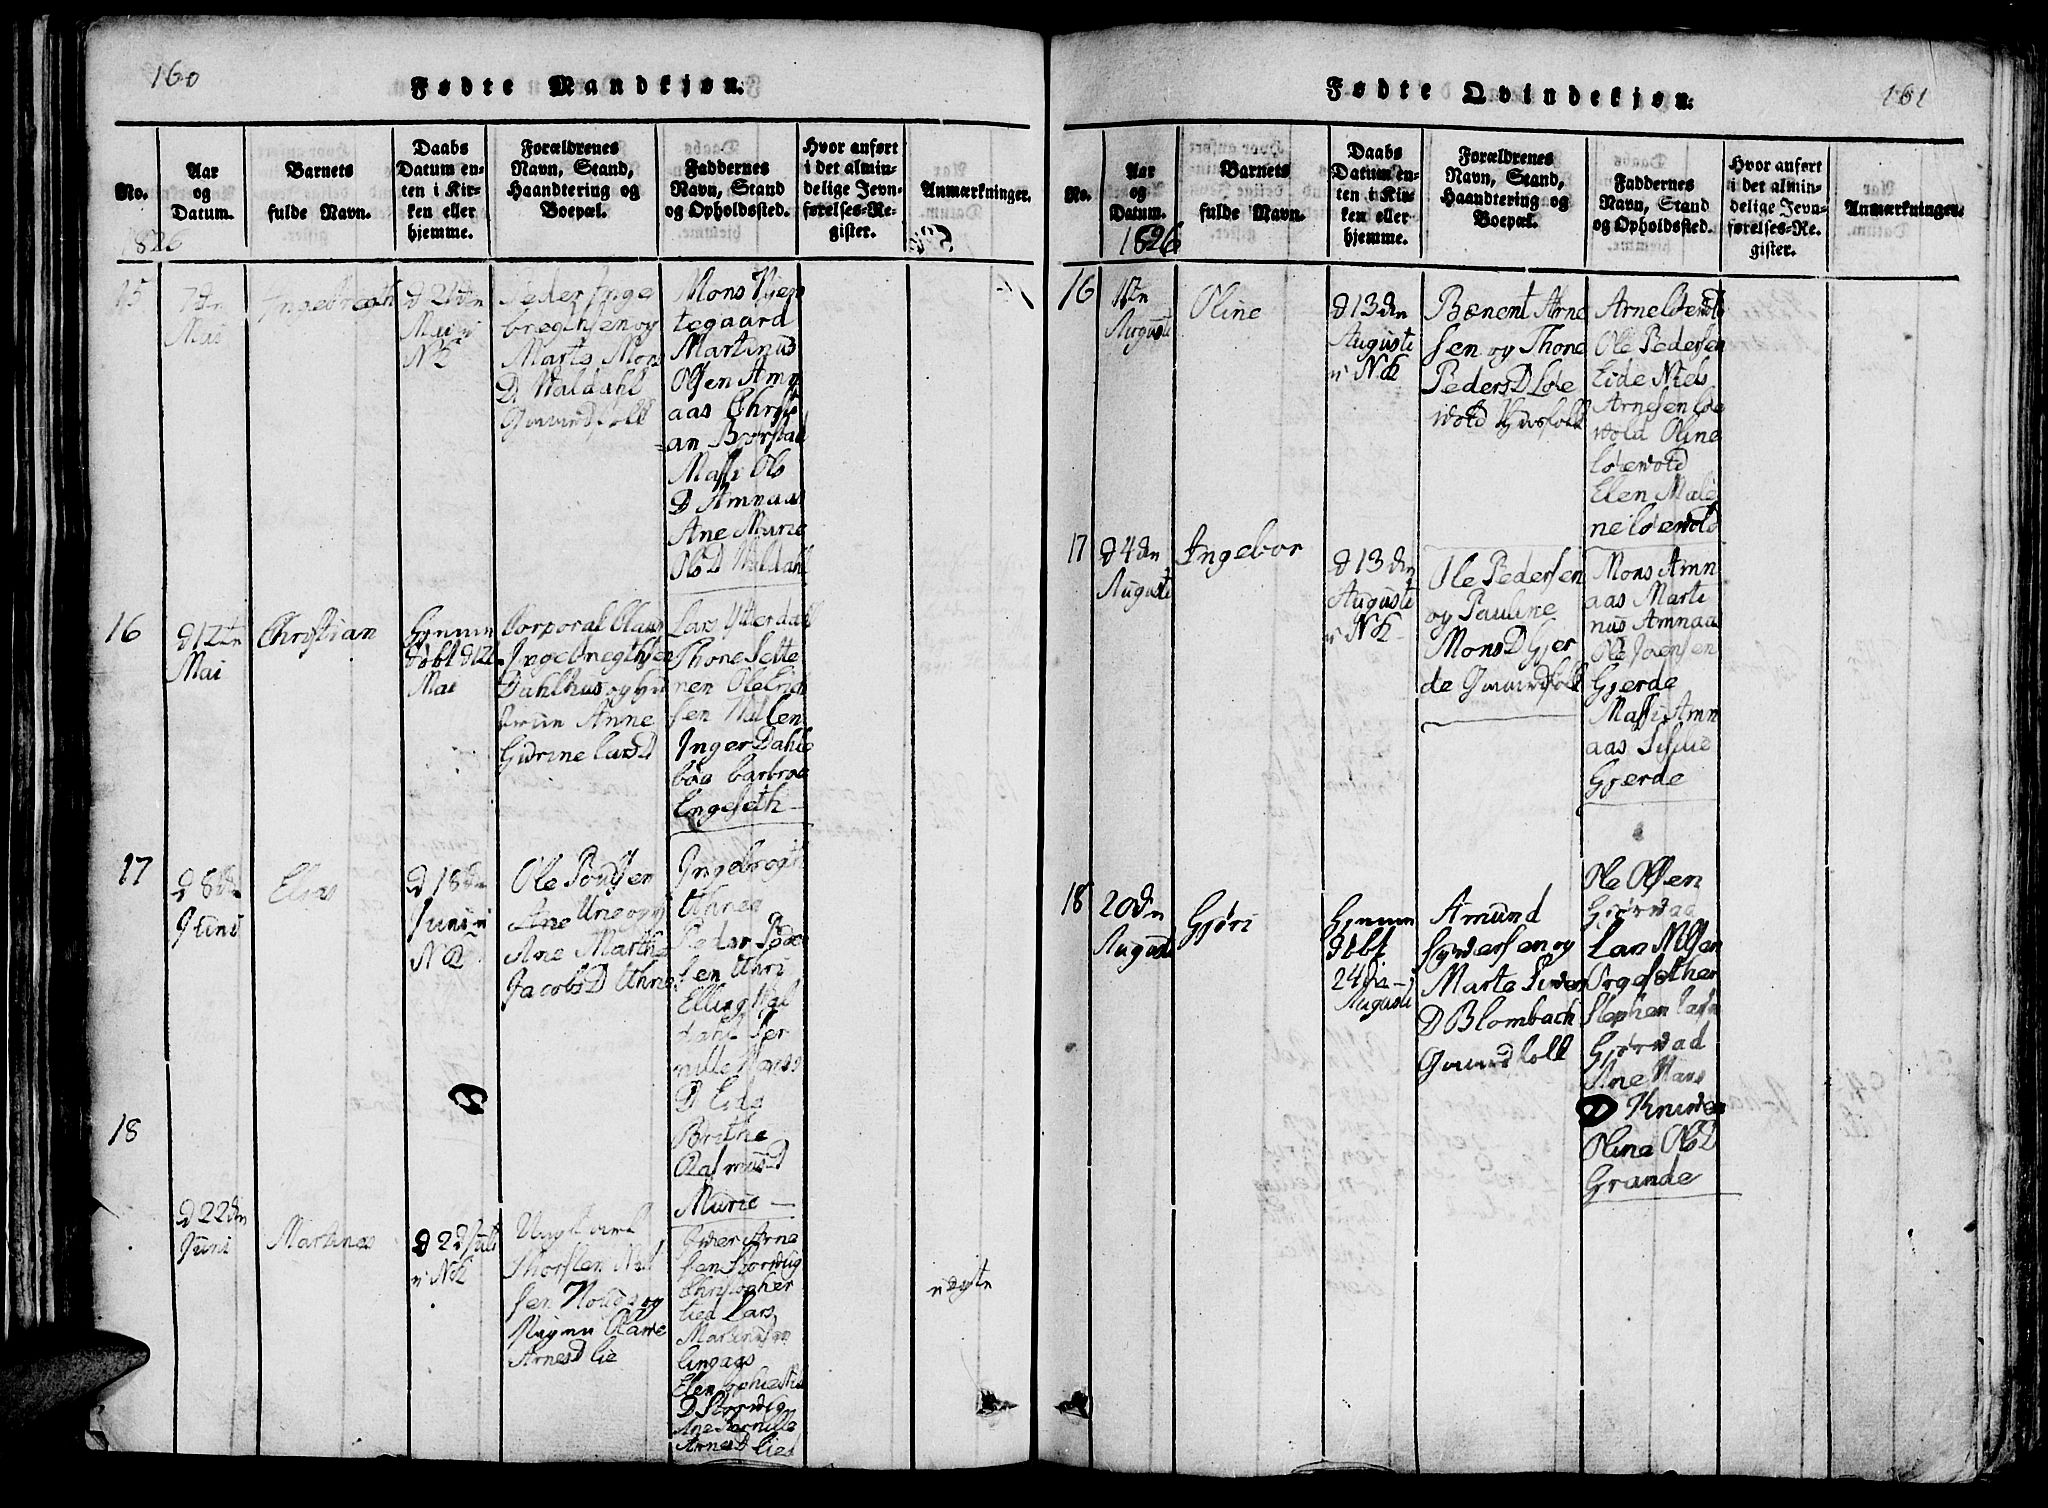 160
Fødte Mandkjøn.
No.
Aar
og
Datum.
Barnets
fulde Navn.
Daabs
Datum en-
ten i Kir-
ken eller
hjemme.
Forældrenes
Navn, Stand,
Haandtering og
Boepæl.
Faddernes
Navn, Stand
og Opholdssted.
Hvor anført
i det almin-
delige Jevn-
førelses-Re-
gister.
Anmærkninger.
1826
15
7dn
Mai
Ingebregth
d 21dn
Mai i
NK
Peder Inge
bregthsen og
Marte Mons
D Waldahl
Gaardfolk
Mons
tegaard
Martinus
Olsen Amn
aas Christi
an
Massi Ols
D Amnaas
Ane Marie
Ols D Waldahl
16
d 12tn
Mai
Christian
Hjemme
døbt d 12
Mai
Corporal Claus
Ingebregthsen
Dahlhus og Hu
struu Anne
Gurine Lars D
Lars Ytterdahl
Thone Sette
nen Ole Erich
sen
Inger Dahle
bøa barbroe
Engeseth
17
d 8dn
Juni
Elias
d 18dn
Juni i
NK
Ole
Ane Ung
Ane Marthe
Jacobs D Uthne
Ingebregth
Uthnes
Peder Peder
sen Uthne
Elling Wal
dahl Per
nille Hans
D Eide
Brithe
Rasmus D
Murie
18
d 22dn
Juni
Martines
d 2d Juli
i NK
Ungkarl
Thorsten Nil
sen og
Pigen
Arnes D Lie
Arne
sen Størwig
Christopher
Lied Lars
Martinusen
Lingaas
Elen
D Størwig
Ane Pernille
Arnes D Lied
uægte
161
Fødte Qvindekjøn.
No.
Aar
og
Datum.
1826
Barnets
fulde Navn.
Daabs
Datum en-
ten i Kir-
ken eller
hjemme.
Forældrenes
Navn, Stand,
Haandtering og
Boepæl.
Faddernes
Navn, Stand
og Opholdssted.
Hvor anført
i det almin-
delige Jevn-
førelses-Re-
gister.
Anmærkninger.
16
1tn
Augusti
Oline
d 13dn
Augusti
i NK
Bænent Arne
sen og Thone
Peders D Løe
wold Husfolk
Arne Løewold
Ole Pedersen
Eide Niels
Arnesen Løe
wold Oline
Løewold
Elen Male
ne Løewold
17
d 4dn
Augusti
Ingebor
d 13dn
Augusti
i NK
Ole Pedersen
og Pauline
Mons D Gjer
de Gaardfolk
Mons Amn
aas Marti
nus Amnaas
Ole Joensen
Gjerde
Massi Amn
aas Sillie
Gjerde
18
20dn
Augusti
Gjøri
Hjemme
døbt
24de
Augusti
Amund
Syversen og
Marte Siver
D Blombach
Gaardfolk
Ole Olsen
Gjørwad
Lars Nilsen
Orgesether
Stephen Larsen
Gjørwad
Ane Mari
D Knudsen
Oline Ols D
Grande